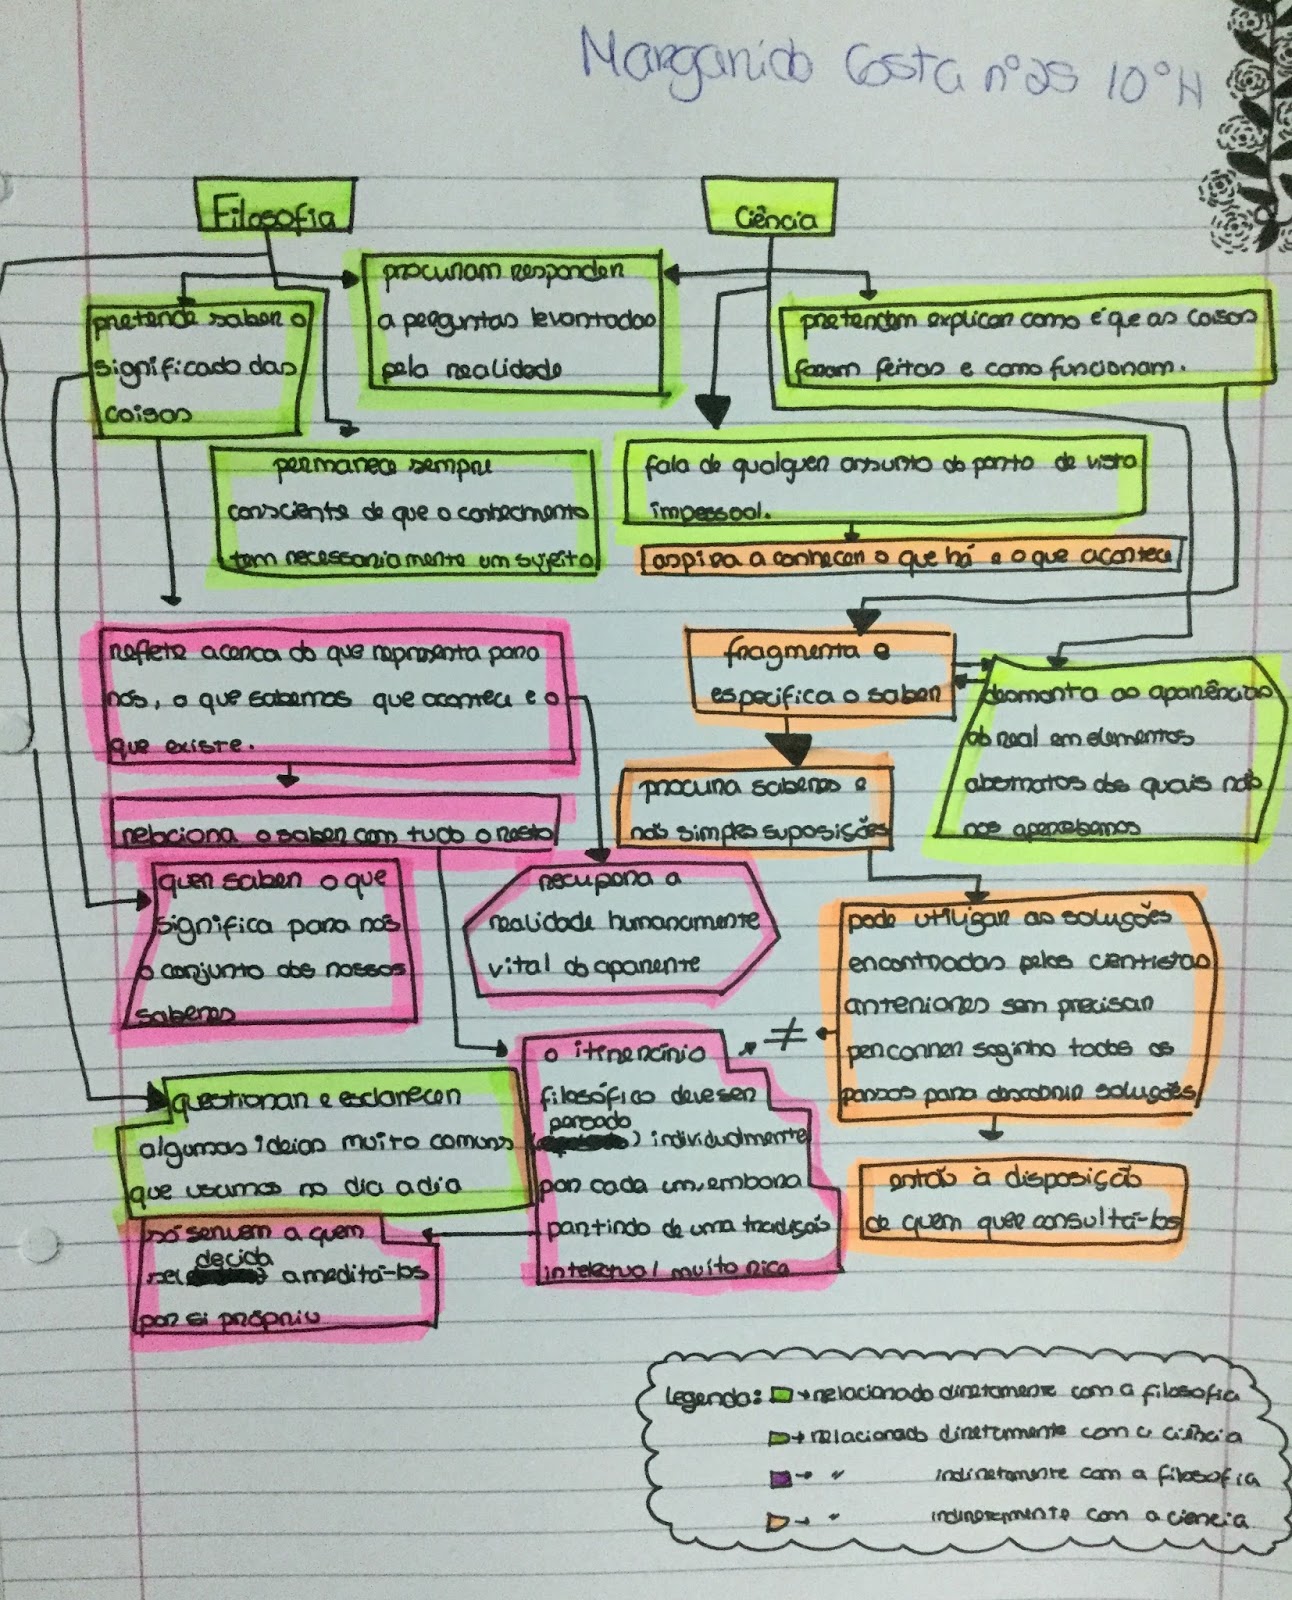 Margarida Costa nº25 10ºH
Filosofia
Ciência
procuram responder
a perguntas levantadas
pela realidade
pretende saber o
significado das
coisas
pretendem explicar como é que as coisas
foram feitas e como funcionam.
permanece sempre
consciente de que o conhecimento
tem necessariamente um sujeito
fala de qualquer assunto do ponto de vista
impessoal.
aspira a conhecer o que há e o que acontece
reflete acerca do que representa para
nós, o que sabemos que acontece e o
que existe.
fragmenta e
especifica o saber
desmonta as aparências
do real em elementos
abstratos dos quais não
nos apercebemos
procura saberes e
não simples suposições
relaciona o saber com tudo o resto
quer saber o que
significa para nós
o conjunto dos nossos
saberes
recupera a
realidade humanamente
vital do aparente
pode utilizar as soluções
encontradas pelos cientistas
anteriores sem precisar
percorrer sozinho todos os
passos para descobrir soluções
≠
o itinerário
filosófico deve ser
pensado
individualmente
por cada um, embora
partindo de uma tradição
intelectual muito rica
questionar e esclarecer
algumas ideias muito comuns
que usamos no dia a dia
então à disposição
de quem quer consultá-los
só servem a quem
decida
a meditá-los
por si próprio
legenda: → relacionado diretamente com a filosofia
→ relacionado diretamente com a ciência
→ " indiretamente com a filosofia
→ " indiretamente com a ciência